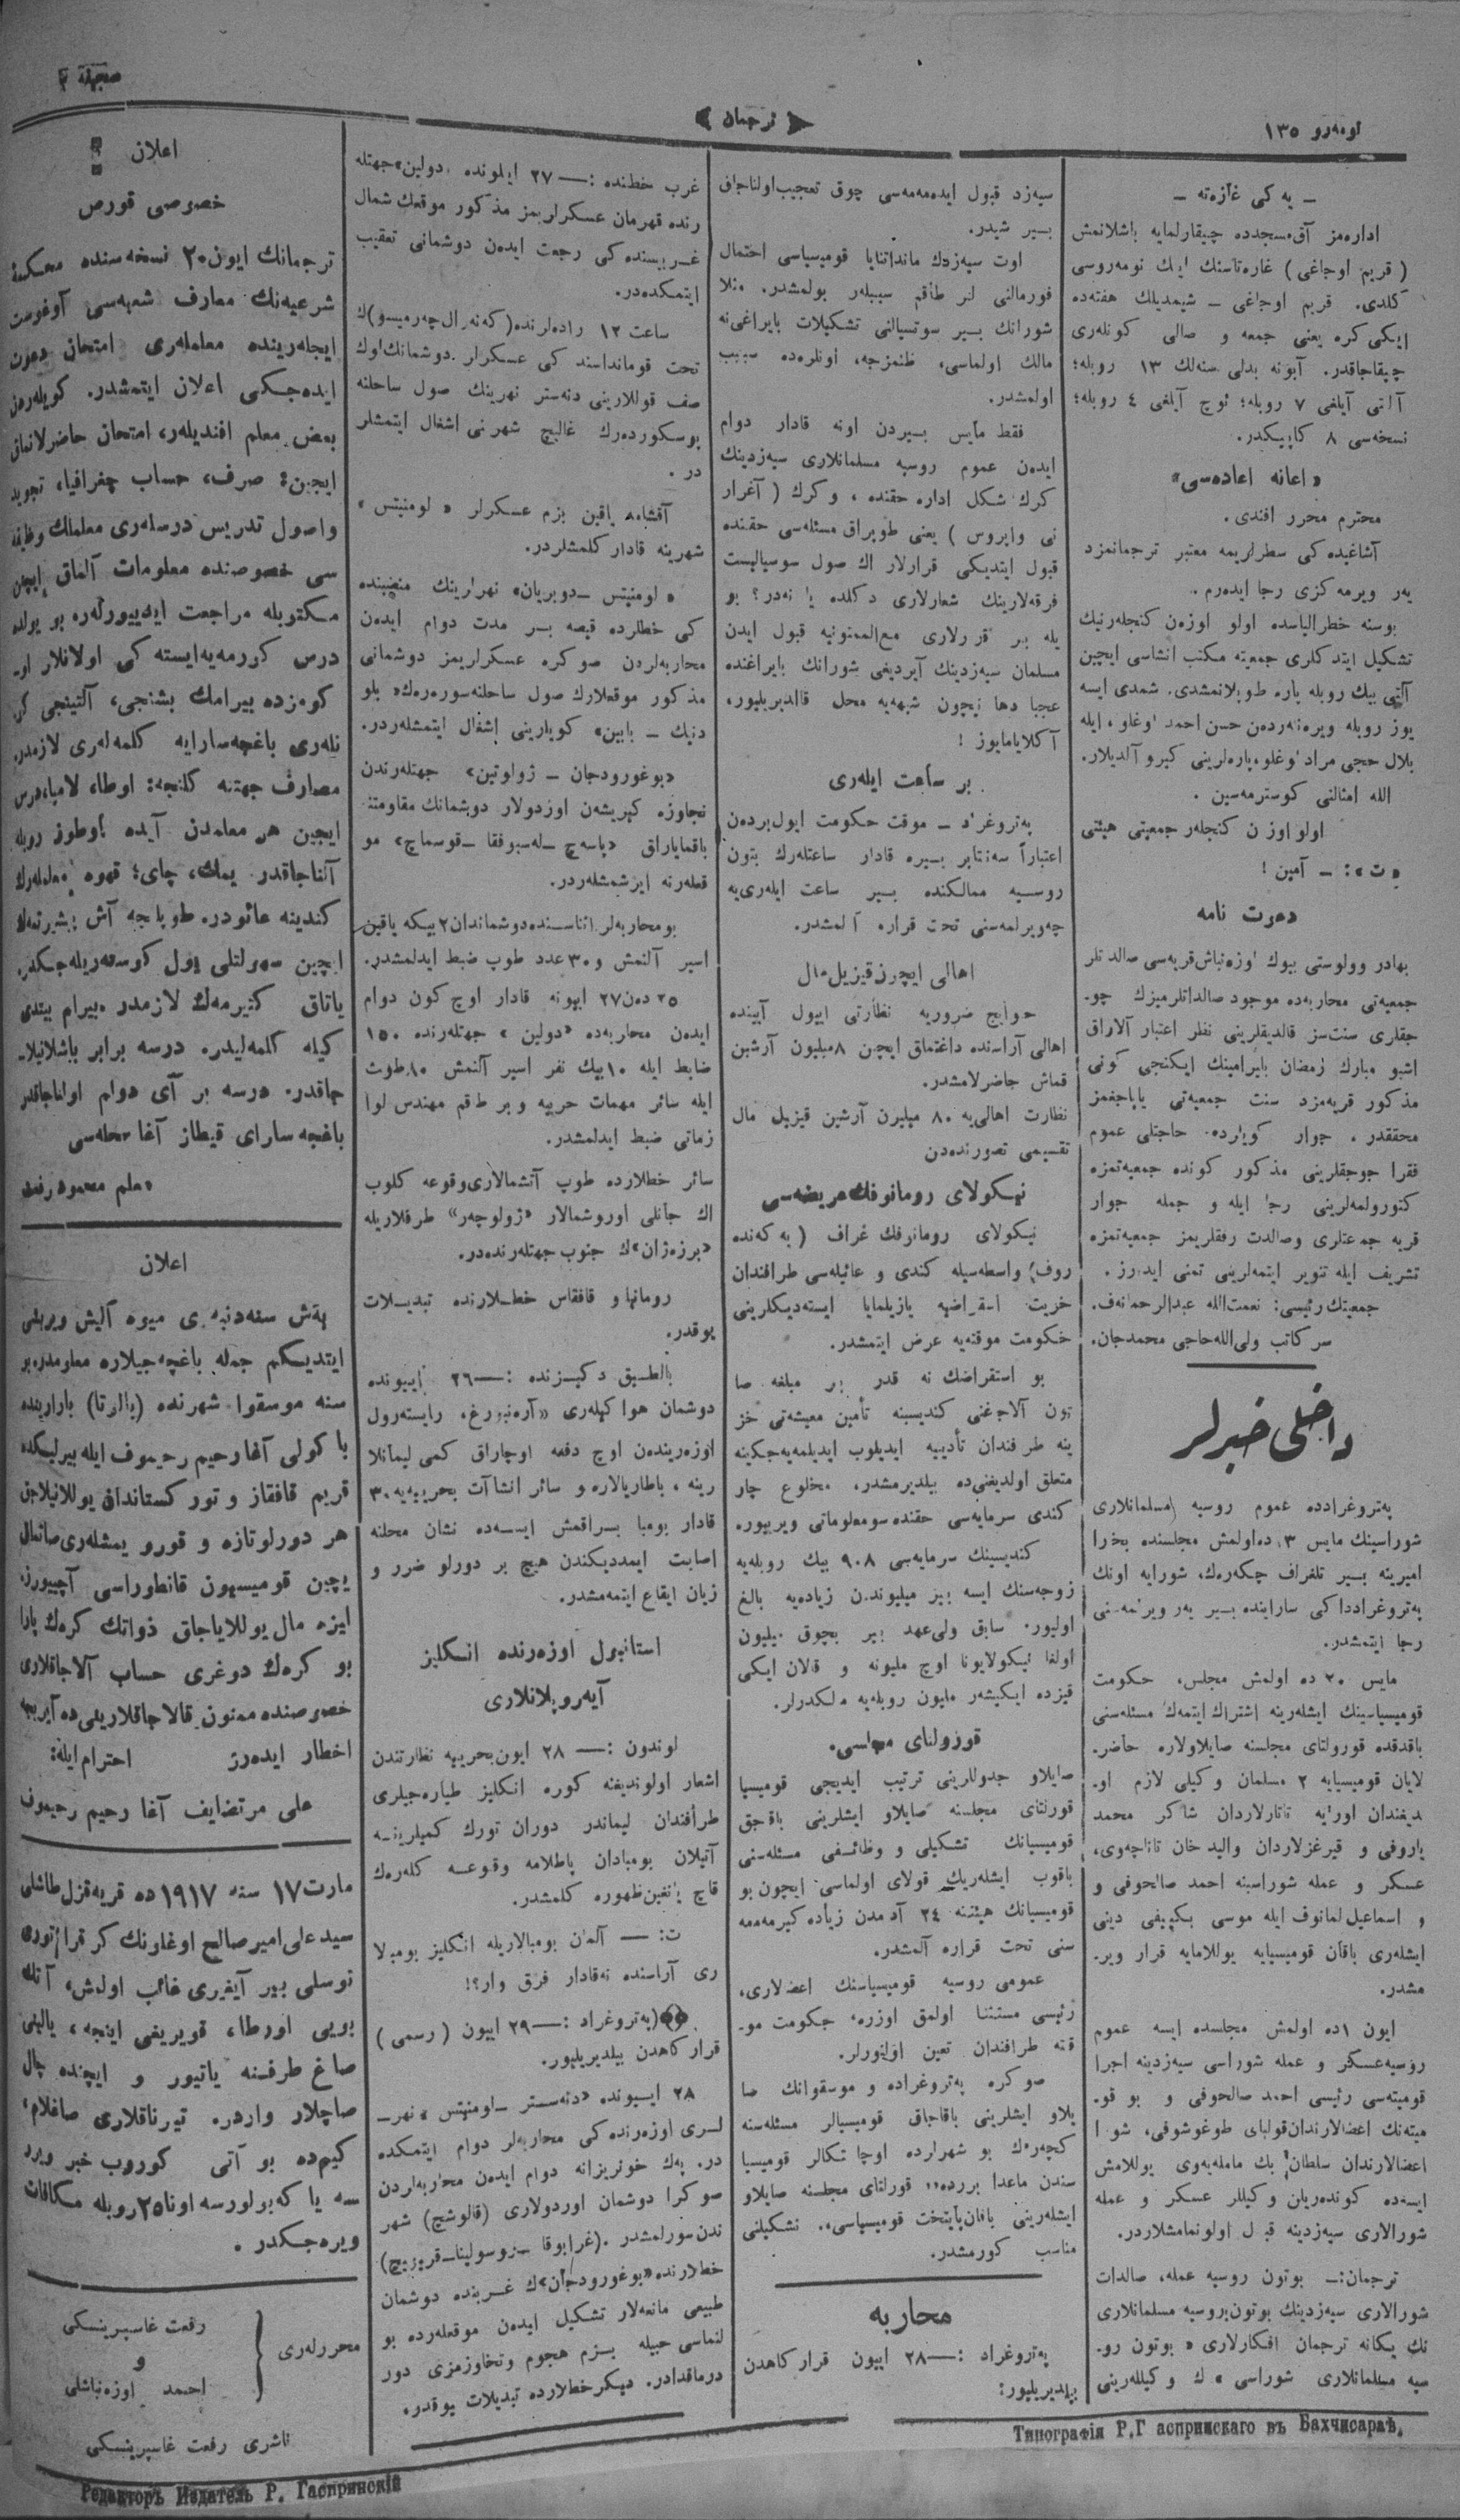 نومەرو ١٣٥
﴿ ترجمان ﴾
صحیفە ٢
ـ یە کی غازەتە ـ
ادارەمز آق‌مسجددە چیقارلمایە باشلانمش
( قریم اوجاغی ) غازەتاسنك ایلك نومەروسی
كلدی. قریم اوجاغی ـ شیمدیلك هفتەدە
ایكی كرە یعنی جمعە و صالی كونلەری
چیقاجاقدر. آبونە بدلی سنەلك ١٣ روبلە؛
آلتی آیلغی ٧ روبلە؛ ئوچ آیلغی ٤ روبلە؛
نسخەسی ٨ كاپیكدر.
« اعانە اعادەسی »
محترم محرر افندی.
آشاغیدە كی سطرلریمە معتبر ترجمانمزد
یەر ویرمە كزی رجا ایدەرم.
بوسنە خطرالیاسدە اولو اوزەن كنجلەرنیك
تشكیل ایتدكلری جمعیتە مكتب انشاسی ایچین
آلتی بیك روبلە پارە طوپلانمشدی. شمدی ایسە
یوز روبلە ویرەنەردەن حسن احمد اوغلو، ایلە
بلال حجی مراد اوغلو، پارەلرینی كیرو آلدیلار.
اللە امثالنی كوسترمەسین.
اولو اوزن كنجلەر جمعیتی هیئتی
«ت»: ـ آمین !
دعوت نامە
بهادر وولوستی بیوك اوزەنباش قریەسی صالدتلر
جمعیەتی محاربەدە موجود صالداتلرمیزك چوـ
جقلری سنت‌سز قالدیقلرینی نظر اعتبار آلاراق
اشبو مبارك رمضان بایرامینك ایكنجی كونی
مذكور قریەمزد سنت جمعیەتی یاپاجغمز
محققدر. جوار كویلردە حاجتلی عموم
فقرا جوجقلرینی مذكور كوندە جمعیەتمزە
كتورولمەلرینی رجا ایلە و جملە جوار
قریە جمعتلری وصالدت رفقلریمز جمعیەتمزە
تشریف ایلە تنویر ایتمەلرینی تمنی ایدرز.
جمعیتك رئیسی: نعمت‌اللە عبدالرحمانەف.
سر كاتب ولی‌اللە حاجی محمدجان.
داخلی خبرلر
پەتروغراددە عموم روسیە مسلمانلاری
شوراسینك مایس ٣٠دەاولمش مجلسندە بخارا
امیرینە بـیر تلغراف چكەرەك، شورایە اونك
پەتروغرادداكی سارایندە بـیر یەر ویرلمەسنی
رجا ایتمشدر.
مایس ٢٠ دە اولمش مجلس، حكومت
قومیسیاسینك ایشلەرینە اشتراك ایتمەك مسئلەسنی
باقدقدە قورولتای مجلسنە صایلاولارە حاضرـ
لایان قومیسیایە ٢ مسلمان وكیلی لازم اوـ
لدیغندان اورایە تاتارلاردان شاكر محمد
یاروفی و قیرغزلاردان والیدخان تاناچەوی،
عسكر و عملە شوراسینە احمد صالحوفی و
و اسماعیل لمانوف ایلە موسی بكییفی دینی
ایشلەری باقان قومیسیایە یوللامایە قرار ویرـ
مشدر.
ایون ١دە اولمش مجلسدە ایسە عموم
روسیەعسكر و عملە شوراسی سیەزدینە اجرا
قومیتەسی رئیسی احمد صالحوفی و بو قوـ
میتەنك اعضالارندان‌قولبای طوغوشوفی، شورا
اعضالارندان سلطان بك ماملەیەوی یوللامش
ایسەدە كوندەریلن وكیللر عسكر و عملە
شورالاری سیەزدینە قبول اولونمامشلاردر.
ترجمان:ـ بوتون روسیە عملە، صالدات
شورالاری سیەزدینك بوتون‌روسیە مسلمانلاری
نك یكانە ترجمان افكارلاری « بوتون روـ
سیە مسلمانلاری شوراسی » ك وكیللەرینی
سیەزد قبول ایدەمەمەسی چوق تعجیب‌اولناجاق
بـیر شیدر.
اوت سیەزدك ماندانتنایا قومیسیاسی احتمال
فورمالنی لر طاقم سببلەر بولمشدر. مثلا
شورانك بـیر سوتسیالنی تشكیلات بایراغی‌نە
مالك اولماسی، ظنمزجە، اونلرەدە سبب
اولمشدر.
فقط مایس بـیردن اونە قادار دوام
ایدەن عموم روسیە مسلمانلاری سیەزدینك
كرك شكل ادارە حقندە، و كرك ( آغرار
نی وایروس ) یعنی طوپراق مسئلەسی حقندە
قبول ایتدیكی قرارلار اك صول سوسیالیست
فرقەلارینك شعارلاری دكلدە یا نەدر؟ بو
یلە بر قررلاری مع‌الممنونیە قبول ایدن
مسلمان سیەزدینك آیردیغی شورانك بایراغندە
عجبا دها نیچون شبهەیە محل قالدیریلیور،
آكلایامایوز !
بر ساعت ایلەری
پەتروغراد ـ موقت حكومت ایول‌بردەن
اعتباراً سەنتابر بـیرە قادار ساعتلەرك بتون
روسـیە ممالكندە بـیر ساعت ایلەری‌یە
چەویرلمەسنی تحت قرارە آلمشدر.
اهالی ایچون‌قیزیل‌مال
حوایج ضروریە نظارتی اییول آییندە
اهالی آراسندە داغتماق ایچن ٨میلیون آرشین
قماش حاضرلامشدر.
نظارت اهالی‌یە ٨٠ میلیون آرشین قیزیل مال
تقسیمی تصورندەدن
نیكولای رومانوفك عریضەسی
نیكولای رومانوفك غراف (بە كەندە
روف) واسطەسیلە كندی و عائیلەسی طرافندان
حریت استقراضیە یازیلمایا ایستەدیكلرینی
حكومت موقتەیە عرض ایتمشدر.
بو استقراضك نە قدر بر مبلغە صا
تون آلاجغنی كندیسینە تأمین معیشەتی خز
ینە طرفندان تأدییە ایدیلوب ایدیلمەیەجكینە
متعلق اولدیغنی‌دە بیلدیرمشدر. مخلوع چار
كندی سرمایەسی حقندە سومعلوماتی ویریورە
كندیسینك سرمایەسی ٩٠٨ بیك روبلەیە
زوجەسنك ایسە بیر میلیوندن زیادەیە بالغ
اولیور. سابق ولی‌عهد بیر بچوق میلیون
اولغا نیكولایونا اوچ ملیونە و قالان ایكی
قیزدە ایكیشەر ملیون روبلەیە مالكدرلر.
قورولتای مجلسی.
صایلاو جدوللرینی ترتیب ایدیجی قومیسیا
قورلتای مجلسنە صایلاو ایشلرینی باقجق
قومیسیانك تشكیلی و وظائـفی مسئلەسنی
باقوب ایشلەریك قولای اولماسی ایچون بو
قومیسیانك هیئتنە ٢٤ آدمدن زیادە كیرمەمە
سنی تحت قرارە آلمشدر.
عمومی روسیە قومیسیاسنك اعضالاری،
رئیسی مستثنا اولمق اوزرە، حكومت موـ
قتە طرافندان تعین اولنورلر.
صوكرە پەتروغرادە و موسقوانك صا
یلاو ایشلرینی باقاجاق قومیسیالر مسئلەسنە
كچەرەك بو شهرلردە اوچاتكالر قومیسیا
سندن ماعدا بررەدە قورلتای مجلسنە صایلاو
ایشلەرینی باقان‌پایتخت قومیسیاسی،. تشكیلنی
مناسب كورمشدر.
محاربە
پەتروغراد :ـــ٢٨ ایبون قراركاهدن
بیلدیریلیور:
غرب خطندە :ـــ ٢٧ ایلوندە «دولین»جهتلە
رندە قهرمان عسكرلریمز مذكور موقعك شمال
غـربیسندە كی رجعت ایدەن دوشمانی تعقیب
ایتمكدەدر.
ساعت ١٢ رادەلرندە(كەنەرال چەرمیسو)ك
تحت قومانداسند كی عسكرلر.دوشمانك‌اوك
صف قوللارینی دنەستر نهرینك صول ساحلنە
بوسكوردەرك غالیچ شهرنی اشغال ایتمشلر
در .
آقشامە یاقین بزم عسكرلر « لومنیتس »
شهرینە قادار كلمشلردر.
« لومنیتس ـ دوبریان» نهرلرینك منصبندە
كی خطلردە قیصە بـر مدت دوام ایدەن
محاربەلردن صوكرە عسكرلریمز دوشمانی
مذكور موقعلارك صول ساحلنەسورەرەك« بلو
دنیك ـ بابین» كویلرینی اشغال ایتمشلەردر.
«بوغورودجان ـ ژولوتین» جهتلەرندن
تجاوزە كیریشەن اوردولار دوشمانك مقاومتنە
باقمایاراق «پاسەچ ـلەسیوفقا ـقوسماچ» مو
قعلەرنە ایرشمشلەردر.
بومحاربەلر اثناسـندەدوشماندان٢بیكە یاقین
اسیر آلنمش و ٣٠عدد طوپ ضبط ایدلمشدر.
٢٥ دەن٢٧ ایبونە قادار اوچ كون دوام
ایدەن محاربەدە «دولین» جهتلەرندە ١٥٠
ضابط ایلە ١٠بیك نفر اسیر آلنمش ٨٠طوب
ایلە سائر مهمات حربیە و بر طاقم مهندس لوا
زماتی ضبط ایدلمشدر.
سائر خطلاردە طوپ آتشمالاری‌وقوعە كلوب
اك جانلی اوروشمالار «زلوچەر» طرفلاریلە
«برزەژان»ك جنوب جهتلەرندەدر.
رومانیا و قافقاس خطـلارندە تبدیـلات
یوقدر.
بالطـیق دكیـزندە :ـــ٢٦ ایبوندە
دوشمان هوا كیلەری «آرەنبورغ، رایستەرول
اوزەریندەن اوچ دفعە اوچاراق كمی لیمانلا
رینە ، باطاریالارە و سائر انشاآت بحریەیە٣٠
قادار بومبا بـراقمش ایسـەدە نشان محلنە
اصابت ایمەدیكندن هیچ بر دورلو ضرر و
زیان ایقاع ایتمەمشدر.
استانبول اوزەرندە انـكلیز
آیەروپلانلاری
لوندون :ـــ ٢٨ ایون‌بحریە نظارتندن
اشعار اولوندیغنە كورە انكلیز طیارەجیلری
طرافندان لیماندر دوران تورك كمیلرینـە
آتیلان بومبادان پاطلامە وقوعـە كلەرەك
قاچ یانغین‌ظهورە كلمشدر.
ت: ـــ آلمان بومبالاریلە انكلیز بومبلا
ری آراسندە نەقادار فرق وار؟!
(پەتروغراد :ـــ٢٩ ایبون ( رسمی )
قراركاهدن بیلدیریلیور.
٢٨ ایـیوندە «دنەسـتر ـلومنیتس» نهرـ
لـری اوزەرندە كی محاربەلر دوام ایتمكدە
در. پەك خونریزانە دوام ایدەن محاربەلردن
صوكرا دوشمان اوردولاری (قالوشچ) شهر
ندن سورلمشدر. (غرابوقا ـروسولیناـقریویچ)
خطلارندە«بوغورودجان»ك غـربندە دوشمان
طبیعی مانعەلار تشكیل ایدەن موقعلەردە بو
لنماسی حیلە بـزم هجوم وتخاوزمزی دور
درماقدادر. دیكرخطلاردە تبدیلات یوقدر.
اعلان
خصوصی قورص
ترجمانك ایون٢٠ نسخەسندە محكمۀ
شرعیەنك معارف شعبەسی آوغوست
ایچلەریندە معلملەری امتحان دعوت
ایدەجكی اعلان ایتمشدر. كویلەردن
بعض معلم افندیلەر، امتحان حاضرلانماق
ایچین: صرف، حساب جغرافیا، تجوید
واصول تدریس درسلەری معلملك وظیفە
سی خصوصندە معلومات آلماق ایچن
مكتوبلە مراجعت ایدییورلەر، بو یولدە
درس كورمەیەایستە كی اولانلار اوـ
كومزدە بیرامك بشنجی، آلتینجی كو
نلەری باغچەسارایە كلمەلەری لازمدر.
مصارف جهتنە كلنجە: اوطا، لامپا، درس
ایچین هر معلمدن آیدە اوطوز روبلە
آلناجاقدر. یمك، چای؛ قهوە معلملەرك
كندینە عائددر. طوپلجە آش پیشیرتمەك
ایچین سهولتلی یول كوستەریلەجكدر.
یاتاق كتیرمەك لازمدر. بیرام بیتدی
كیلە كلمەلیدر. درسە برابر باشلانیلاـ
جاقدر. درسە بر آی دوام اولناجاقدر
باغچەسارای قیطاز آغا محلەسی
معلم محمود رفعت
اعلان
بەش سنەدنبەری میوە آلیش ویریشی
ایتدیكم جملە باغچەجیلارە معلومدر، بو
سنە موسقوا شهرندە (بالوتا) بازاریندە
باكولی آغا رحیم رحیموف ایلە بیرلیكدە
قریم قافقاز و توركستاندان یوللانیلاجق
هر دورلو تازە و قورو یمشلەری صاتمال
یچین قومیسیون قانطوراسی آچییورز.
ایزە مال یوللایاجاق ذواتك كرەك پارا
بو كرەك دوغری حساب آلاجاقلاری
خصوصندە ممنون قالاجاقلارینی‌دە آیریجە
اخطار ایدەرز احترام ایلە:
علی مرتضایف آغا رحیم رحیموف
مارت١٧ سنە ١٩١٧دە قریە قزل طاشلی
سیدعلی امیرصالح اوغلونك كر قرا توری
توسلی بیر آیغیری غائب اولمش، آتك
بویی اورطا، قویریغی اینجە، یالینی
صاغ طرفنە یاتیور و ایچندە چال
صاچلار واردر. تیرناقلاری صاغلام،
كیم‌دە بو آتی كوروب خبر ویرر
سە یا كە بولورسە اونا٢٥روبلە مكافات
ویرەجكدر.
محررلەری
رفعت غاسپرینسكی
و
احمد اوزەنباشلی
ناشری رفعت غاسپرینسكی
Типографія Р.Г аспринскаго въ Бахчисараѣ.
Редакторъ Издатель Р. Гаспринскій